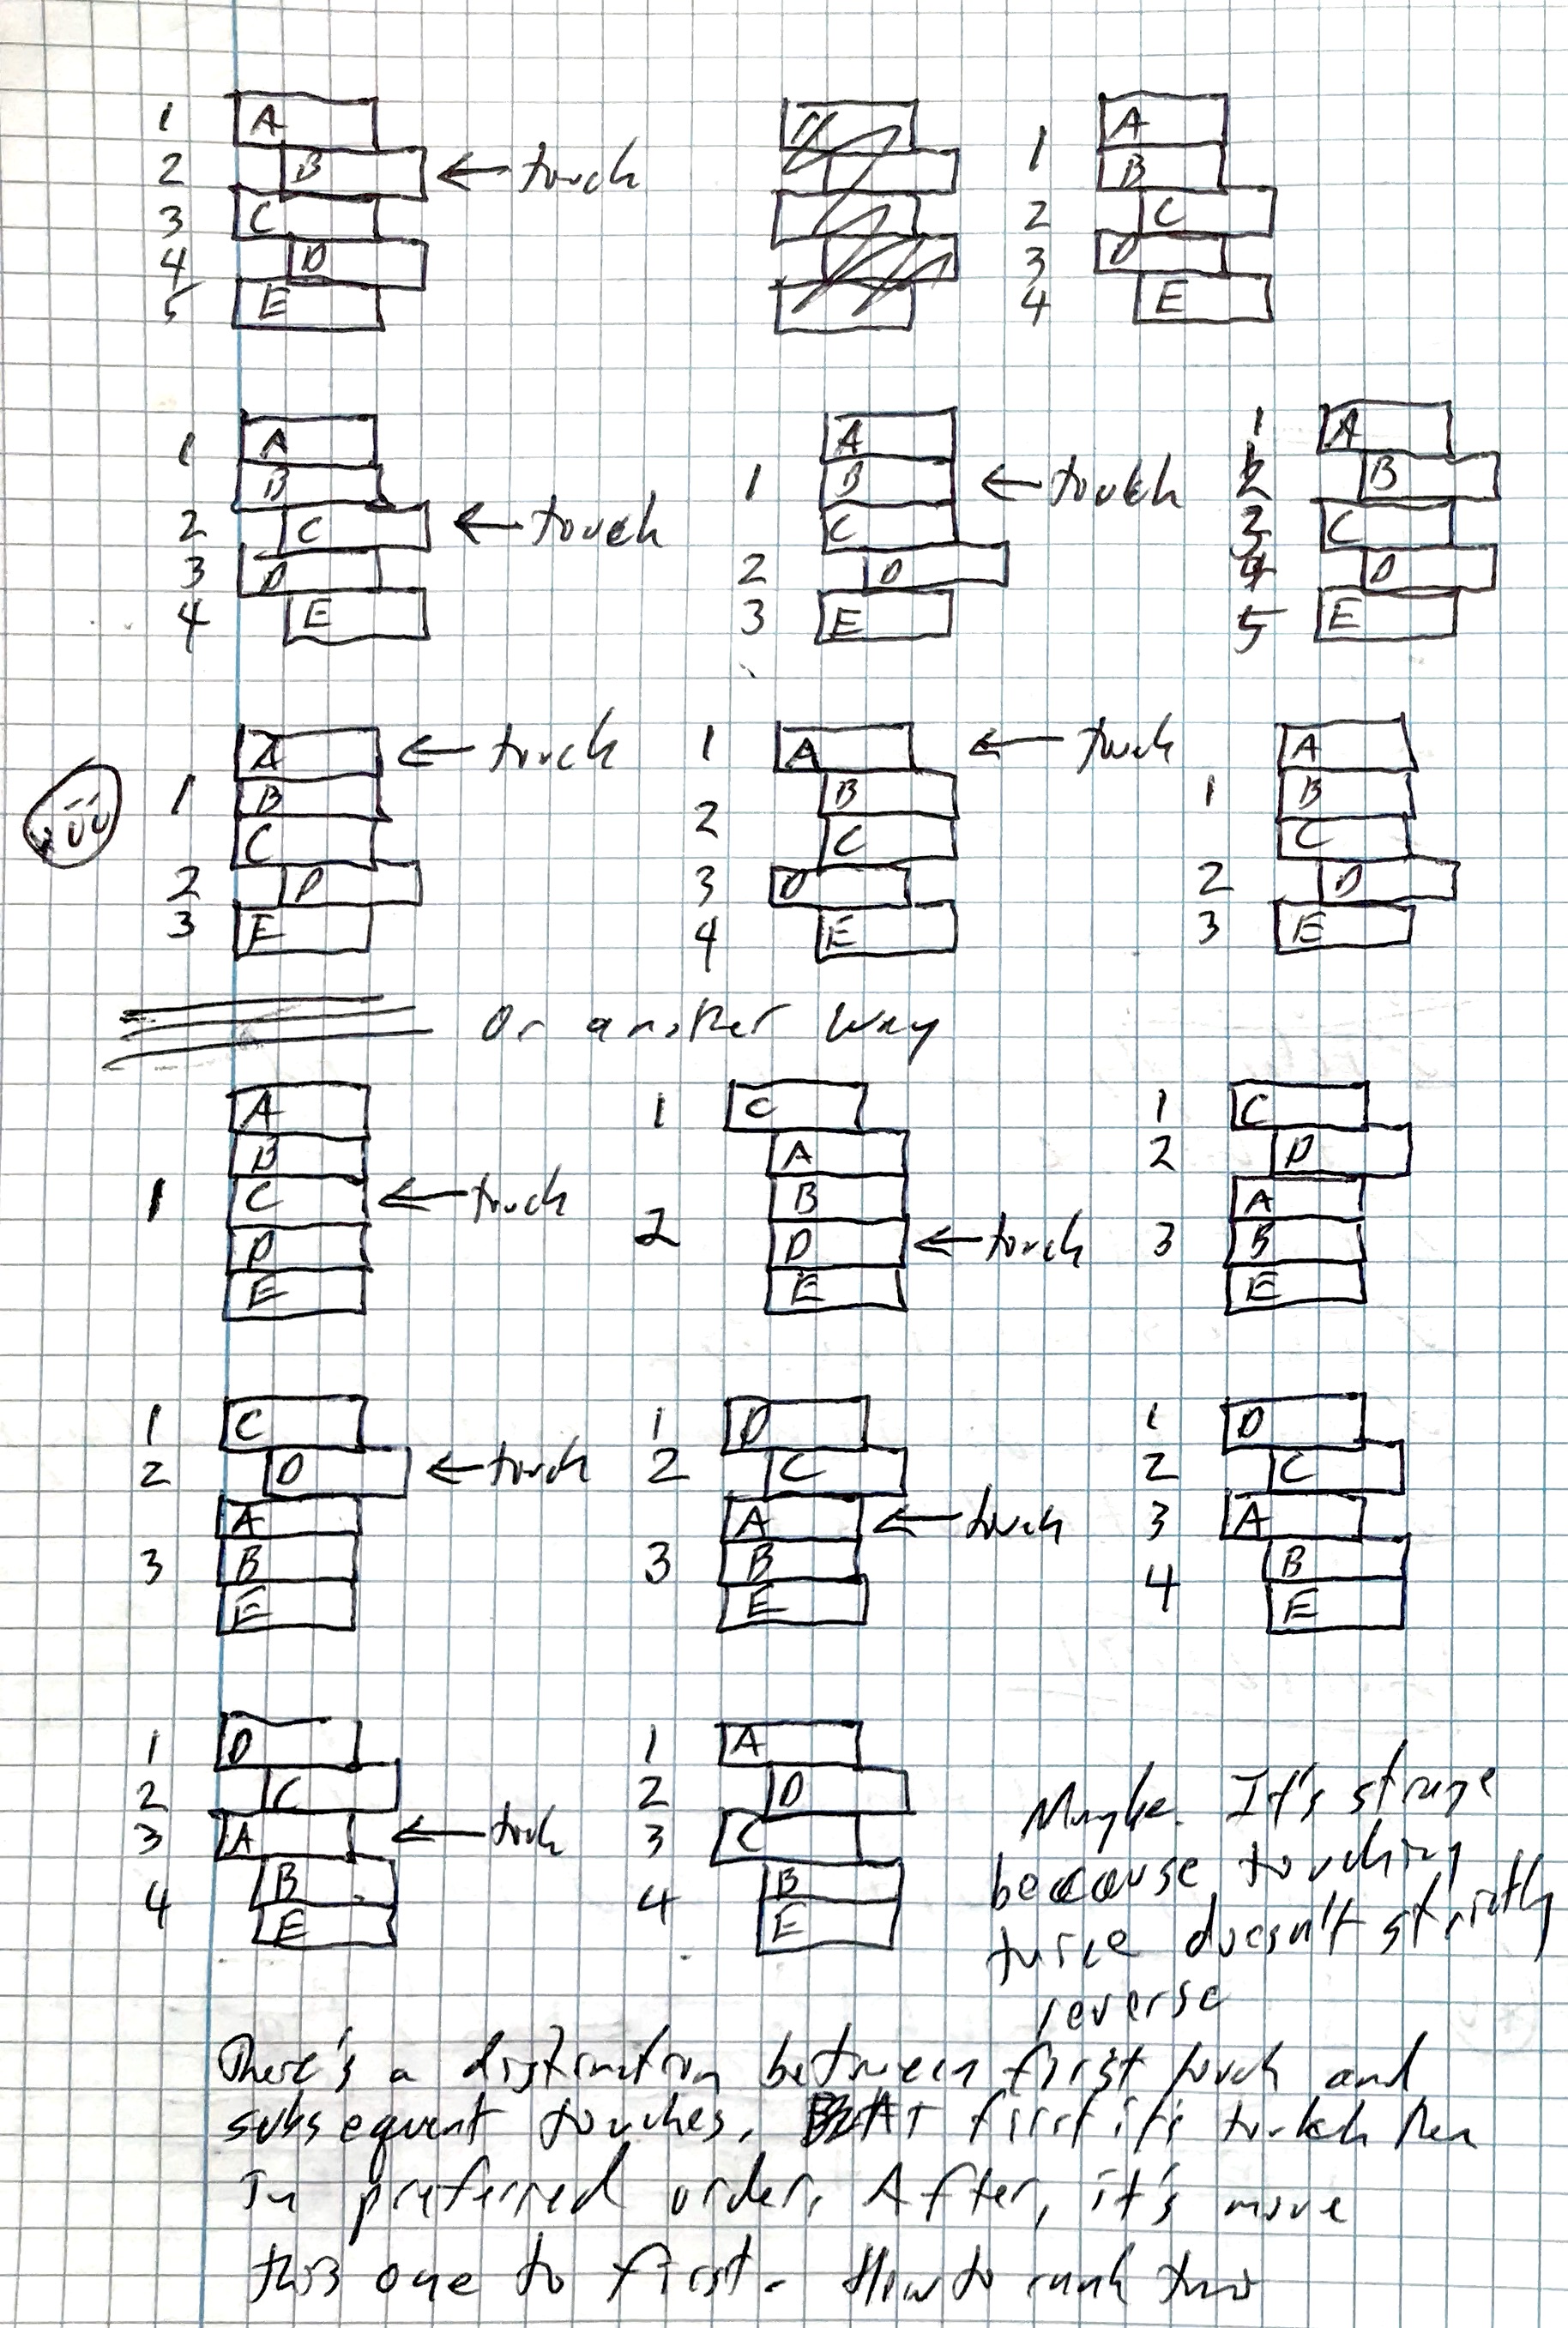 1 A
2 B ← touch
3 C
4 D
5 E
A
1
B
2 C
3 D
4 E
A
1
B
2 C ← touch
3 D
4 E
A
1 B ← touch
C
2 D
3 E
1 A
2 B
3 C
4 D
5 E
A ← touch
1 B
C
2 D
3 E
1 A ← touch
B
2
C
3 D
4 E
A
1 B
C
2 D
3 E
Or another way
A
B
1 C ← touch
D
E
1 C
A
B
2 D ← touch
E
1 C
2 D
A
3 B
E
1 C
2 D ← touch
A
3 B
E
1 D
2 C
A ← touch
3 B
E
1 D
2 C
3 A
B
4
E
1 D
2 C
3 A ← touch
B
4
E
1 A
2 D
3 C
B
4
E
Maybe. It's strange
because touching
twice doesn't strictly
reverse
There's a distinction between first touch and
subsequent touches. At first it's touch
in preferred order. After, it's move
this one to first. How to rank two